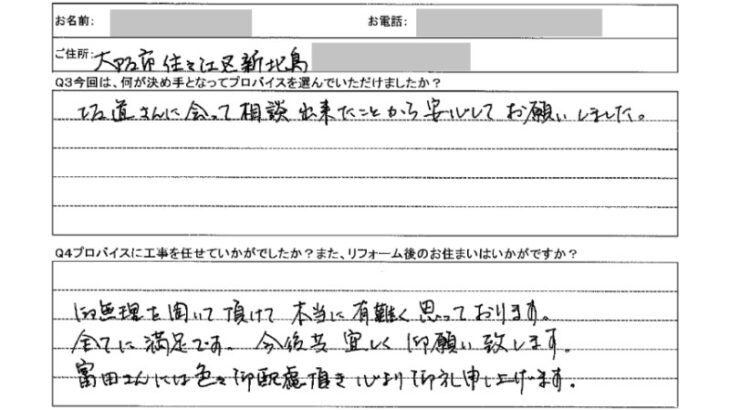 お名前: お電話:
ご住所: 大阪市住之江区新北島
Q3今回は、何が決め手となってプロバイスを選んでいただけましたか？
坂道さんに会って相談出来たことから安心してお願いしました。
Q4プロバイスに工事を任せていかがでしたか？また、リフォーム後のお住まいはいかがですか？
御無理を聞いて頂けて本当に有難く思っております。
全てに満足です。今後共宜しく御願い致します。
富田さんには色々御配慮頂き心より御礼申し上げます。